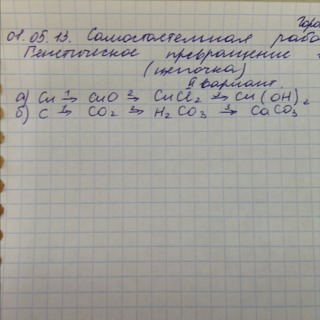 Гора
08.05.13. Самостоятельная рабо
Генетическое превращение
(цепочка)
II вариант.
а) Cu 1→ CuO 2→ CuCl₂ 3→ Cu(OH)₂
б) C 1→ CO₂ 2→ H₂CO₃ 3→ CaCO₃